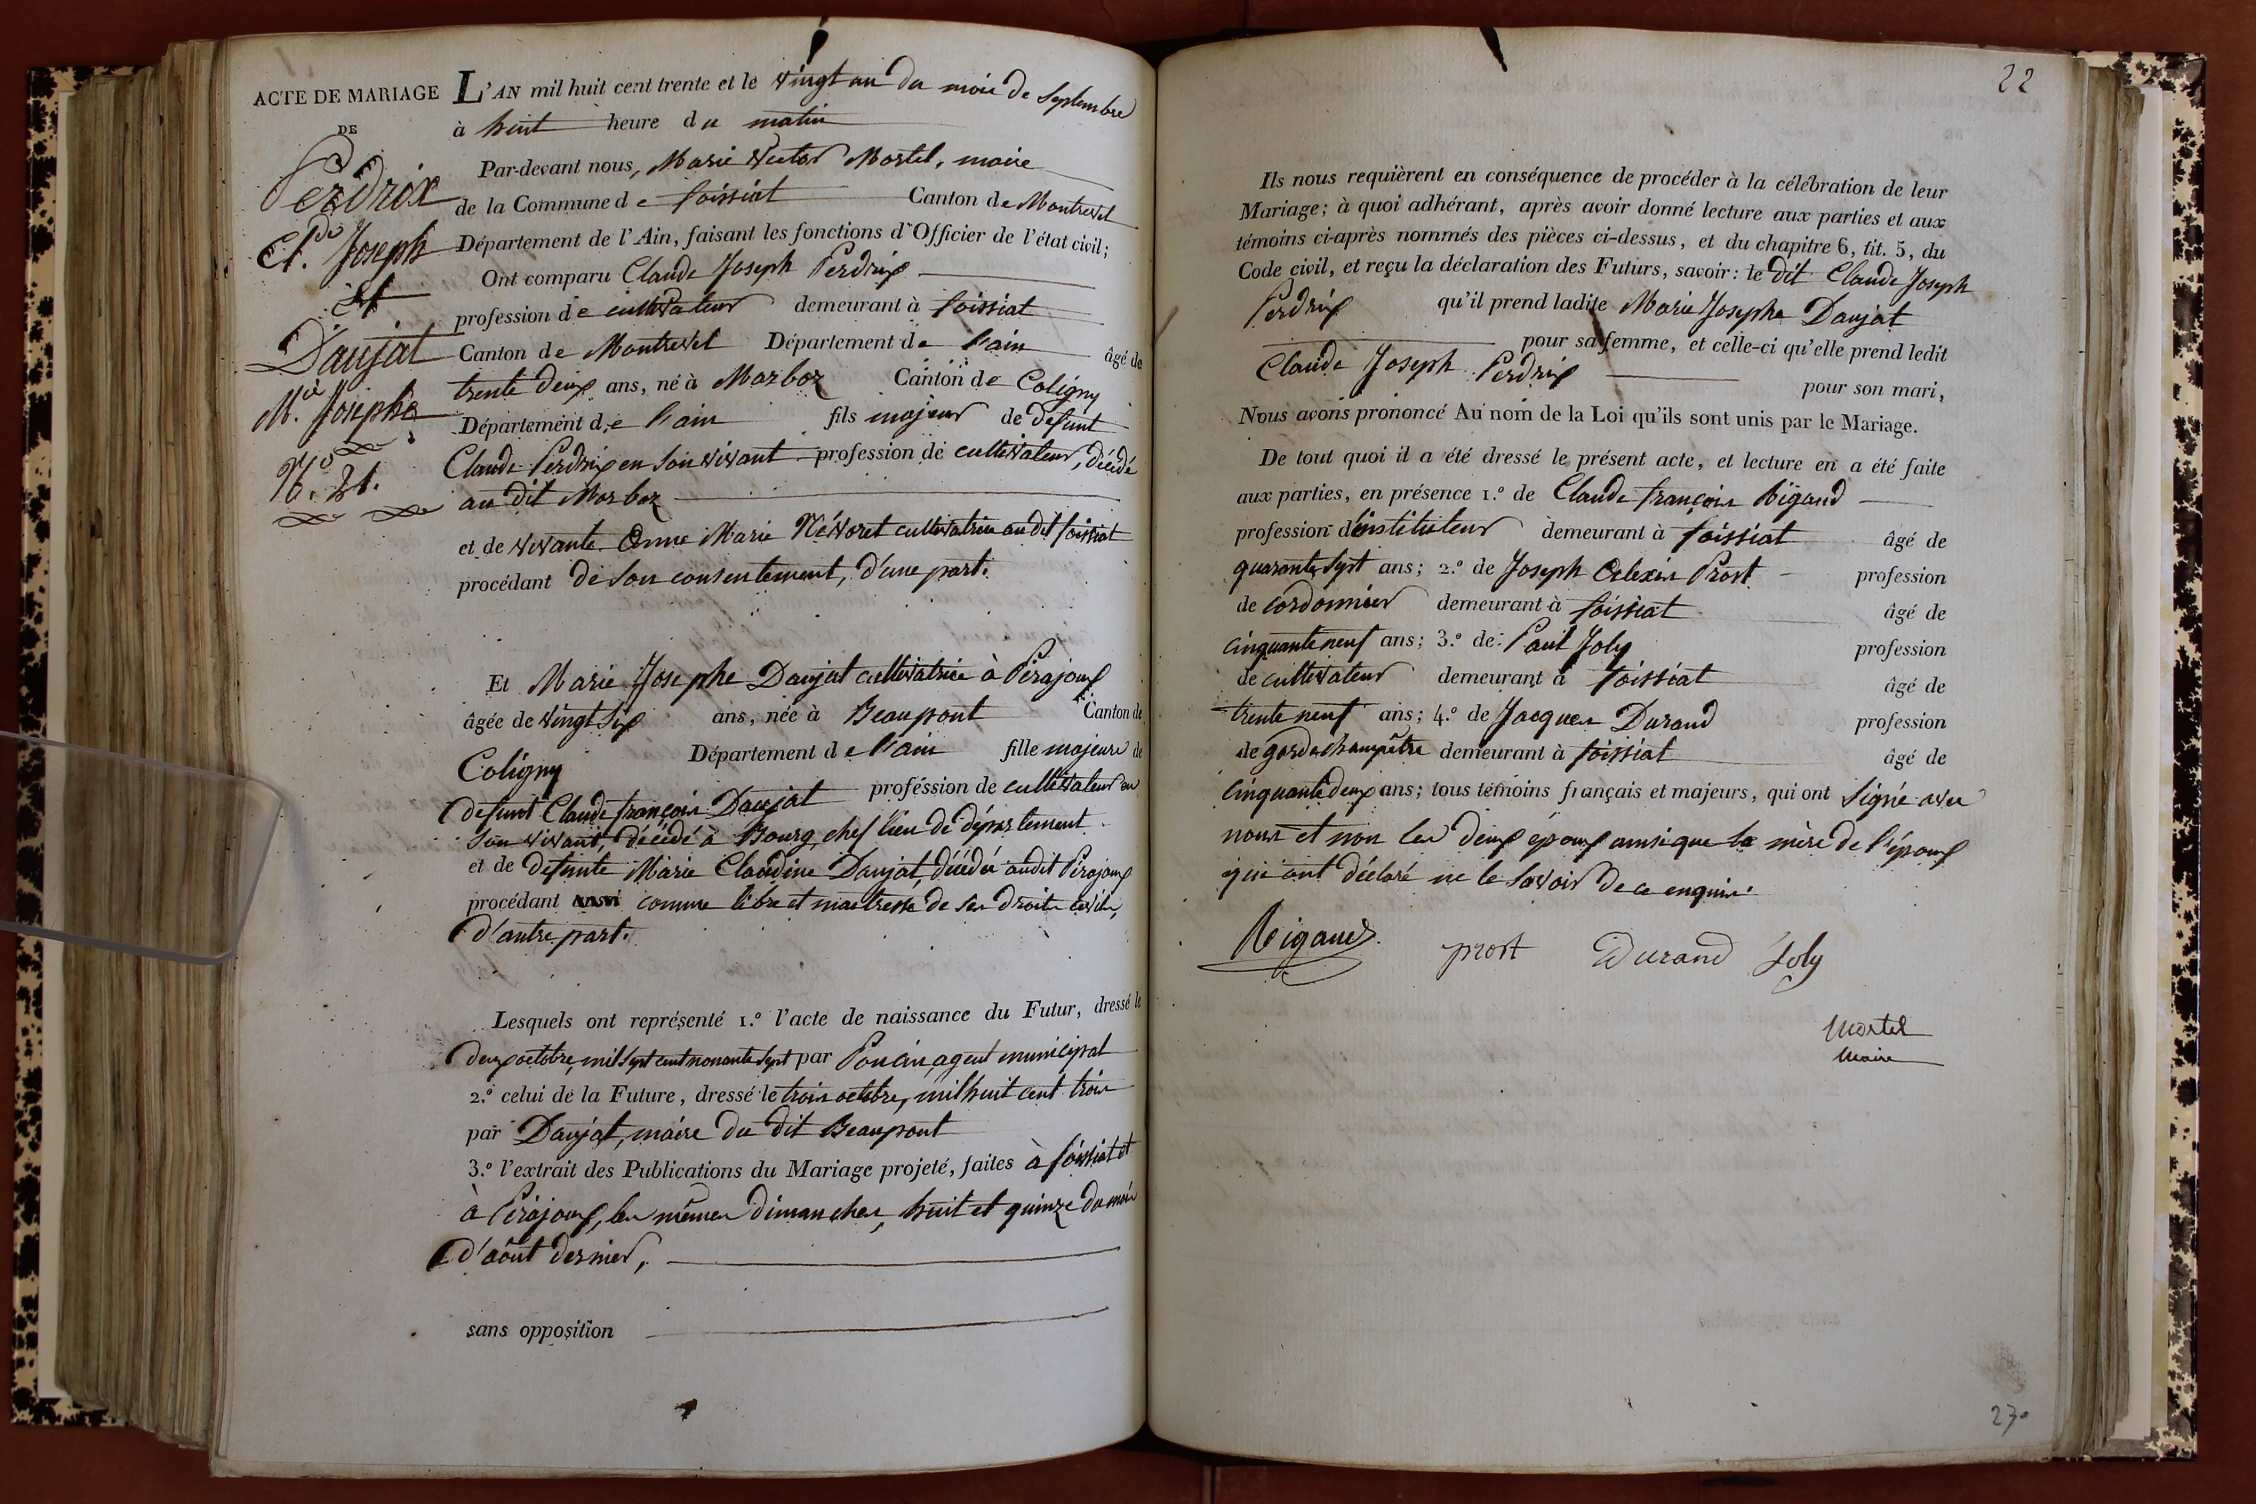 ACTE DE MARIAGE
DE
Perdrix
Cl.de Joseph
et
Daujat
M.ie Josephe
N.o 21.
L'AN mil huit cent trente et le vingt un du mois de Septembre
à huit heure du matin
Par-devant nous, Marie Victor Mortel, maire
de la Commune de foissiat Canton de Montrevel
Département de l'Ain, faisant les fonctions d'Officier de l'état civil;
Ont comparu Claude Joseph Perdrix
profession de cultivateur demeurant à foissiat
Canton de Montrevel Département de l'ain âgé de
trente deux ans, né à Marboz Canton de Coligny
Département de l'ain fils majeur de defunt
Claude Perdrix en son vivant profession de cultivateur, décédé
au dit Marboz
et de vivante Anne Marie Névoret cultivatrice au dit foissiat
procédant de son consentement, d'une part.
Et Marie Josephe Daujat cultivatrice à Pirajoux
âgée de vingt six ans, née à Beaupont Canton de
Coligny Département de l'ain fille majeure de
defunt Claude françois Daujat profession de cultivateur en
son vivant, décédé à Bourg, chef lieu de département
et de defunte Marie Claudine Daujat, décédée audit Pirajoux
procédant comme libre et maitresse de ses droits civils,
d'autre part.
Lesquels ont représenté 1.o l'acte de naissance du Futur, dressé le
deux octobre, mil sept cent nonante sept par Poncin, agent municipal
2.o celui de la Future, dressé le trois octobre, mil huit cent trois
par Daujat, maire du dit Beaupont
3.o l'extrait des Publications du Mariage projeté, faites à foissiat et
à Pirajoux, les mêmes dimanches, huit et quinze du mois
d'août dernier,
sans opposition
22
Ils nous requièrent en conséquence de procéder à la célébration de leur
Mariage; à quoi adhérant, après avoir donné lecture aux parties et aux
témoins ci-après nommés des pièces ci-dessus, et du chapitre 6, tit. 5, du
Code civil, et reçu la déclaration des Futurs, savoir: le dit Claude Joseph
Perdrix qu'il prend ladite Marie Josephe Daujat
pour sa femme, et celle-ci qu'elle prend ledit
Claude Joseph Perdrix pour son mari,
Nous avons prononcé Au nom de la Loi qu'ils sont unis par le Mariage.
De tout quoi il a été dressé le présent acte, et lecture en a été faite
aux parties, en présence 1.o de Claude françois Rigaud
profession d'instituteur demeurant à foissiat âgé de
quarante sept ans; 2.o de Joseph Alexis Prost profession
de cordonnier demeurant à foissiat âgé de
cinquante neuf ans; 3.o de Paul Joly profession
de cultivateur demeurant à foissiat âgé de
trente neuf ans; 4.o de Jacques Durand profession
de garde champêtre demeurant à foissiat âgé de
cinquante deux ans; tous témoins français et majeurs, qui ont signé avec
nous et non les deux époux ainsi que la mère de l'époux
qui ont déclaré ne le savoir de ce enquis.
Rigaud prost Durand Joly
Mortel
Maire
27